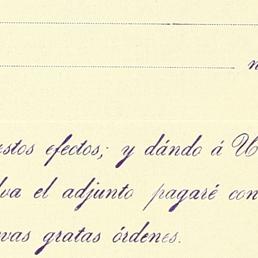 estos efectos; y dándo á U
va el adjunto pagaré con
vas gratas órdenes.